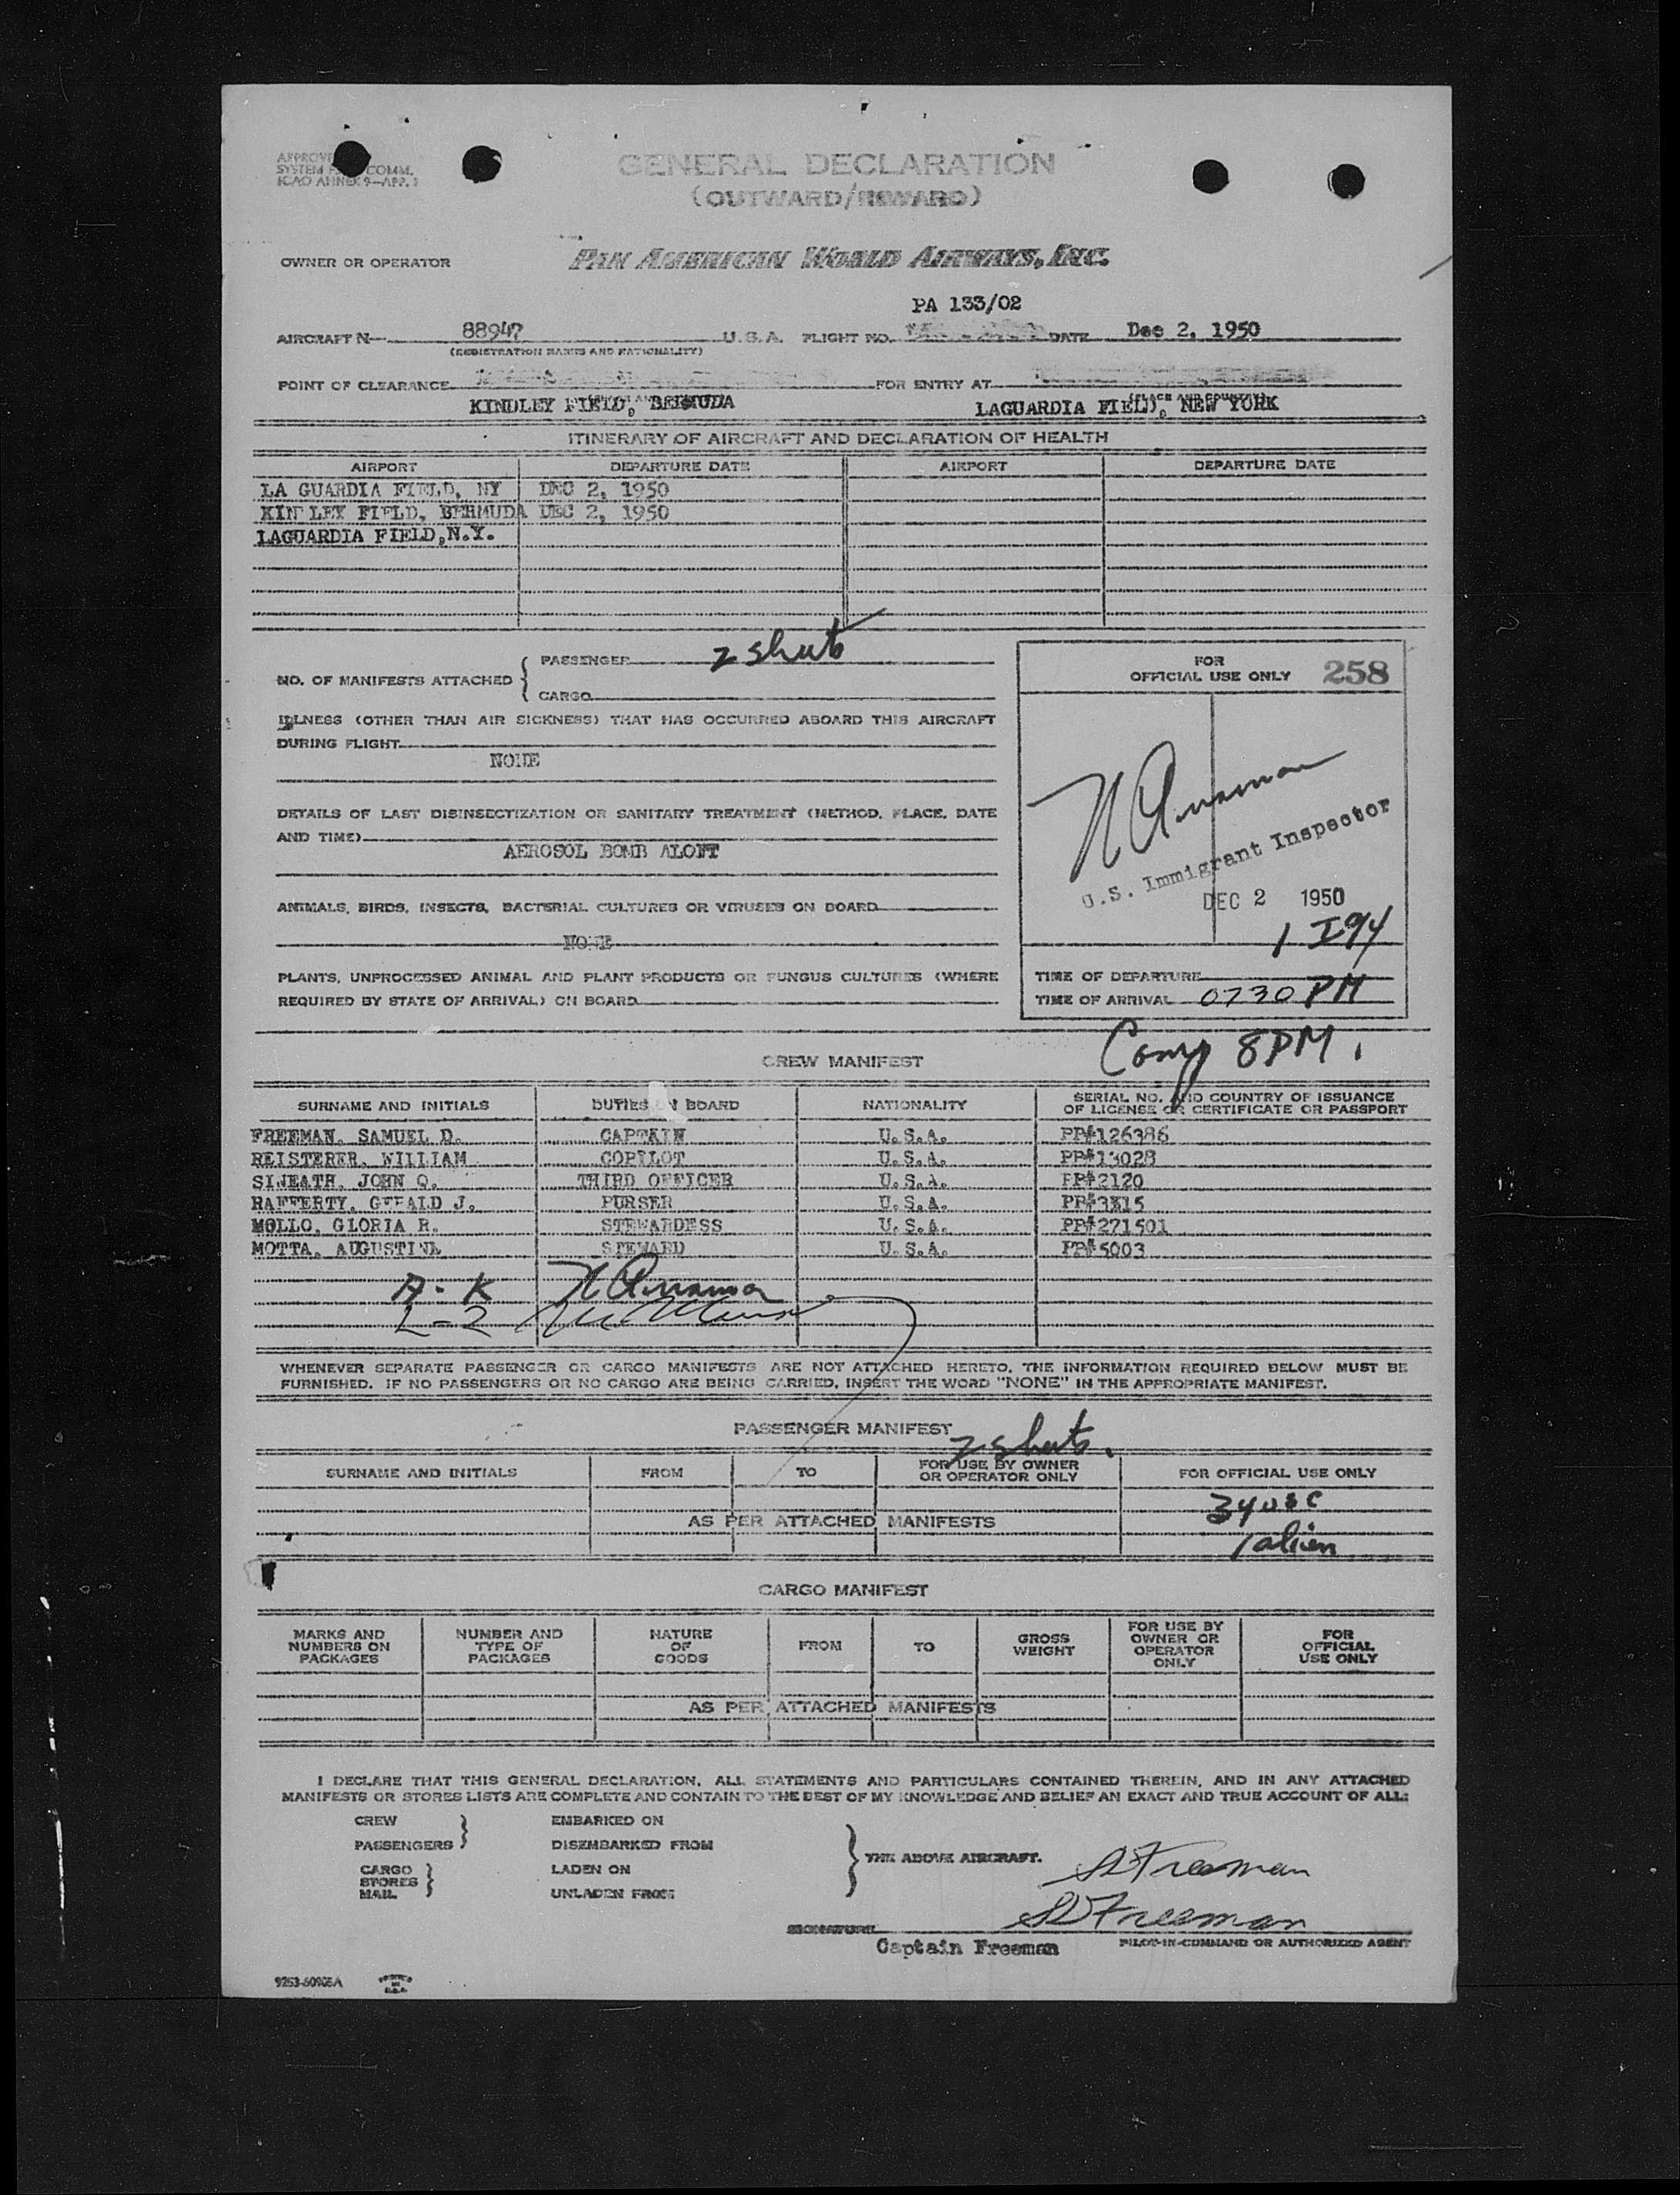 APPROVE
SYSTEM COMM.
ICAO ANNEX 9—APP. 1
GENERAL DECLARATION
(OUTWARD/INWARD)
OWNER OR OPERATOR PAN AMERICAN WORLD AIRWAYS, INC.
PA 133/02
AIRCRAFT N— 88947 U. S. A. FLIGHT NO. DATE Dec 2, 1950
(REGISTRATION MARKS AND NATIONALITY)
POINT OF CLEARANCE FOR ENTRY AT
KINDLEY FIELD, BERMUDA LAGUARDIA FIELD, NEW YORK
ITINERARY OF AIRCRAFT AND DECLARATION OF HEALTH
AIRPORT DEPARTURE DATE AIRPORT DEPARTURE DATE
LA GUARDIA FIELD, NY DEC 2, 1950
KINDLEY FIELD, BERMUDA DEC 2, 1950
LAGUARDIA FIELD,N.Y.
NO. OF MANIFESTS ATTACHED { PASSENGER 2 sheets
CARGO
FOR
OFFICIAL USE ONLY 258
ILLNESS (OTHER THAN AIR SICKNESS) THAT HAS OCCURRED ABOARD THIS AIRCRAFT
DURING FLIGHT
NONE
DETAILS OF LAST DISINSECTIZATION OR SANITARY TREATMENT (METHOD, PLACE, DATE
AND TIME)
AEROSOL BOMB ALOFT
U.S. Immigrant Inspector
DEC 2 1950
1 I94
ANIMALS, BIRDS, INSECTS, BACTERIAL CULTURES OR VIRUSES ON BOARD
NONE
PLANTS, UNPROCESSED ANIMAL AND PLANT PRODUCTS OR FUNGUS CULTURES (WHERE
REQUIRED BY STATE OF ARRIVAL) ON BOARD
TIME OF DEPARTURE
TIME OF ARRIVAL 0730 PM
Comp 8PM.
CREW MANIFEST
SURNAME AND INITIALS DUTIES ON BOARD NATIONALITY SERIAL NO. AND COUNTRY OF ISSUANCE
OF LICENSE OR CERTIFICATE OR PASSPORT
FREEMAN, SAMUEL D. CAPTAIN U.S.A. PP#126386
REISTERER, WILLIAM COPILOT U.S.A. PP#13028
SINEATH, JOHN Q. THIRD OFFICER U.S.A. PP#2120
RAFFERTY, GERALD J. PURSER U.S.A. PP#3315
MOLLO, GLORIA R. STEWARDESS U.S.A. PP#271501
MOTTA, AUGUSTINE STEWARD U.S.A. PP#5003
A - K
L - Z
WHENEVER SEPARATE PASSENGER OR CARGO MANIFESTS ARE NOT ATTACHED HERETO, THE INFORMATION REQUIRED BELOW MUST BE
FURNISHED. IF NO PASSENGERS OR NO CARGO ARE BEING CARRIED, INSERT THE WORD "NONE" IN THE APPROPRIATE MANIFEST.
PASSENGER MANIFEST 2 sheets.
SURNAME AND INITIALS FROM TO FOR USE BY OWNER
OR OPERATOR ONLY FOR OFFICIAL USE ONLY
34 USC
AS PER ATTACHED MANIFESTS
1 alien
CARGO MANIFEST
MARKS AND
NUMBERS ON
PACKAGES NUMBER AND
TYPE OF
PACKAGES NATURE
OF
GOODS FROM TO GROSS
WEIGHT FOR USE BY
OWNER OR
OPERATOR
ONLY FOR
OFFICIAL
USE ONLY
AS PER ATTACHED MANIFESTS
I DECLARE THAT THIS GENERAL DECLARATION, ALL STATEMENTS AND PARTICULARS CONTAINED THEREIN, AND IN ANY ATTACHED
MANIFESTS OR STORES LISTS ARE COMPLETE AND CONTAIN TO THE BEST OF MY KNOWLEDGE AND BELIEF AN EXACT AND TRUE ACCOUNT OF ALL:
CREW EMBARKED ON
PASSENGERS DISEMBARKED FROM
CARGO LADEN ON
STORES
MAIL UNLADEN FROM
THE ABOVE AIRCRAFT.
S Freeman
SIGNATURE SD Freeman
Captain Freeman PILOT-IN-COMMAND OR AUTHORIZED AGENT
PRINTED
IN
U.S.A.